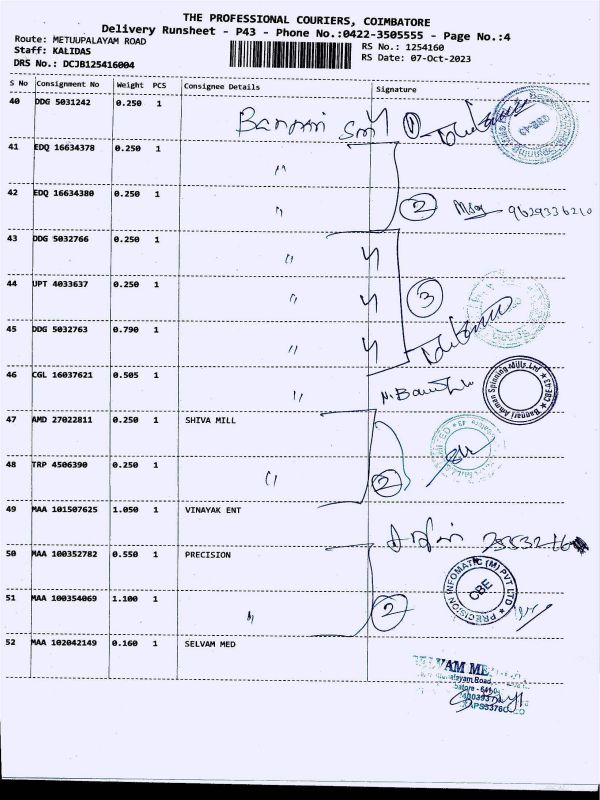 THE PROFESSIONAL COURIERS, COIMBATORE
Delivery Runsheet - P43 - Phone No.:0422-3505555 - Page No.:4
Route: METUUPALAYAM ROAD
RS No.: 1254160
Staff: KALIDAS
RS Date: 07-Oct-2023
DRS No.: DCJB125416004
S No Consignment No Weight PCS Consignee Details Signature
40 DDG 5031242 0.250 1
Bannari Sml 1
41 EDQ 16634378 0.250 1 "
42 EDQ 16634380 0.250 1 " 2 9629336210
43 DDG 5032766 0.250 1 "
44 UPT 4033637 0.250 1 " 3
45 DDG 5032763 0.790 1 "
46 CGL 16037621 0.505 1 "
Bannari Amman Spinning Mills Ltd
47 AMD 27022811 0.250 1 SHIVA MILL
48 TRP 4506390 0.250 1 " 2
49 MAA 101507625 1.050 1 VINAYAK ENT
50 MAA 100352782 0.550 1 PRECISION
PRECISION INFOMATIC (M) PVT LTD
CBE
51 MAA 100354069 1.100 1 " 2
52 MAA 102042149 0.160 1 SELVAM MED